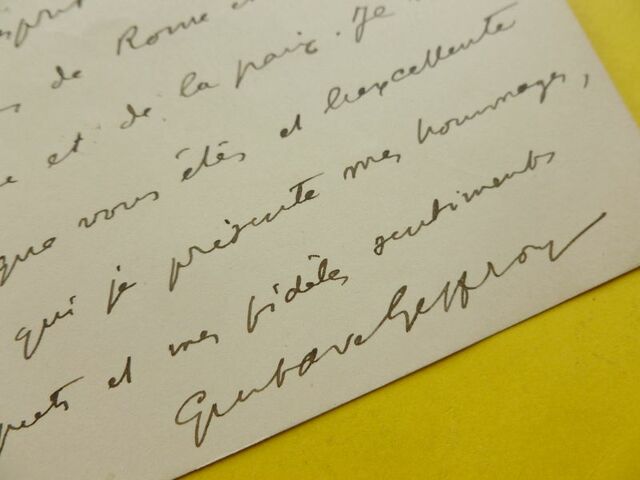 de Rome
et de la paix. Je
que vous êtes et l'excellente
qui je présente mes hommages,
et mes fidèles sentiments
Gustave Geffroy